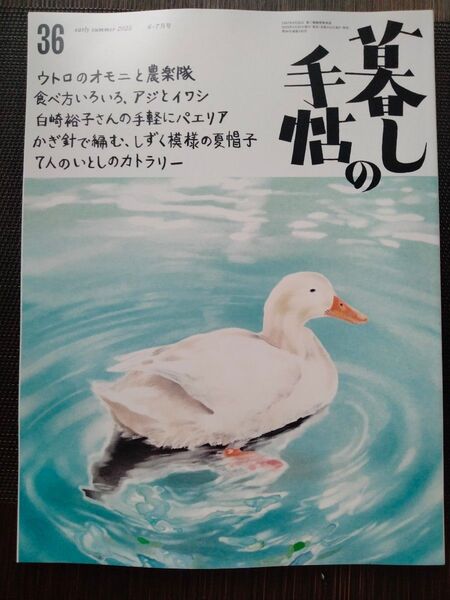 36
early summer 2025
6-7月号
暮しの
手帖
ウトロのオモニと農楽隊
食べ方いろいろ、アジとイワシ
白崎裕子さんの手軽にパエリア
かぎ針で編む、しずく模様の夏帽子
7人のいとしのカトラリー